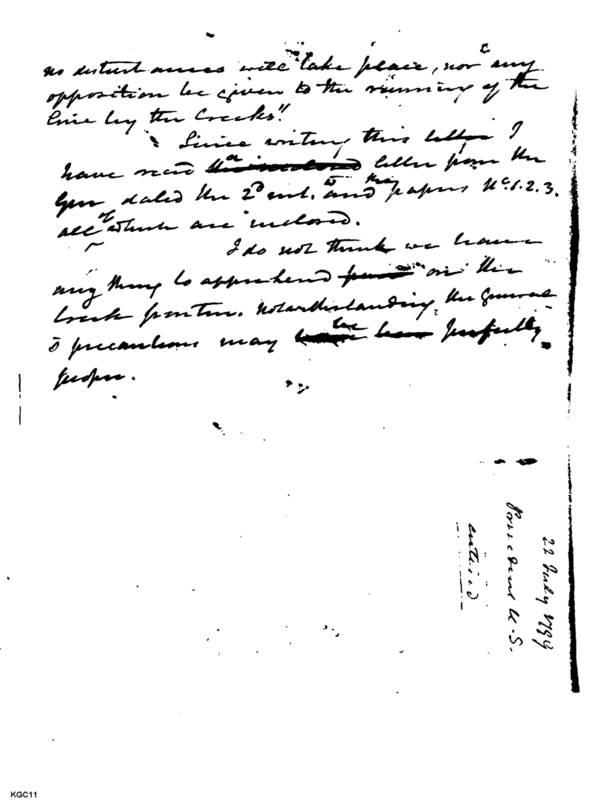 no disturbances will take place, nor any
opposition be given to the running of the
line by the Creeks."
Since writing this letter I
have read letter from the
Gen dated the 2d inst. and the papers No. 1. 2. 3.
all of which are inclosed.
I do not think we have
any thing to apprehend on the
Creek frontier. Notwithstanding, the General
s precautions may be perfectly
proper.
22 July 1799
President U.S.
entered
KGC11